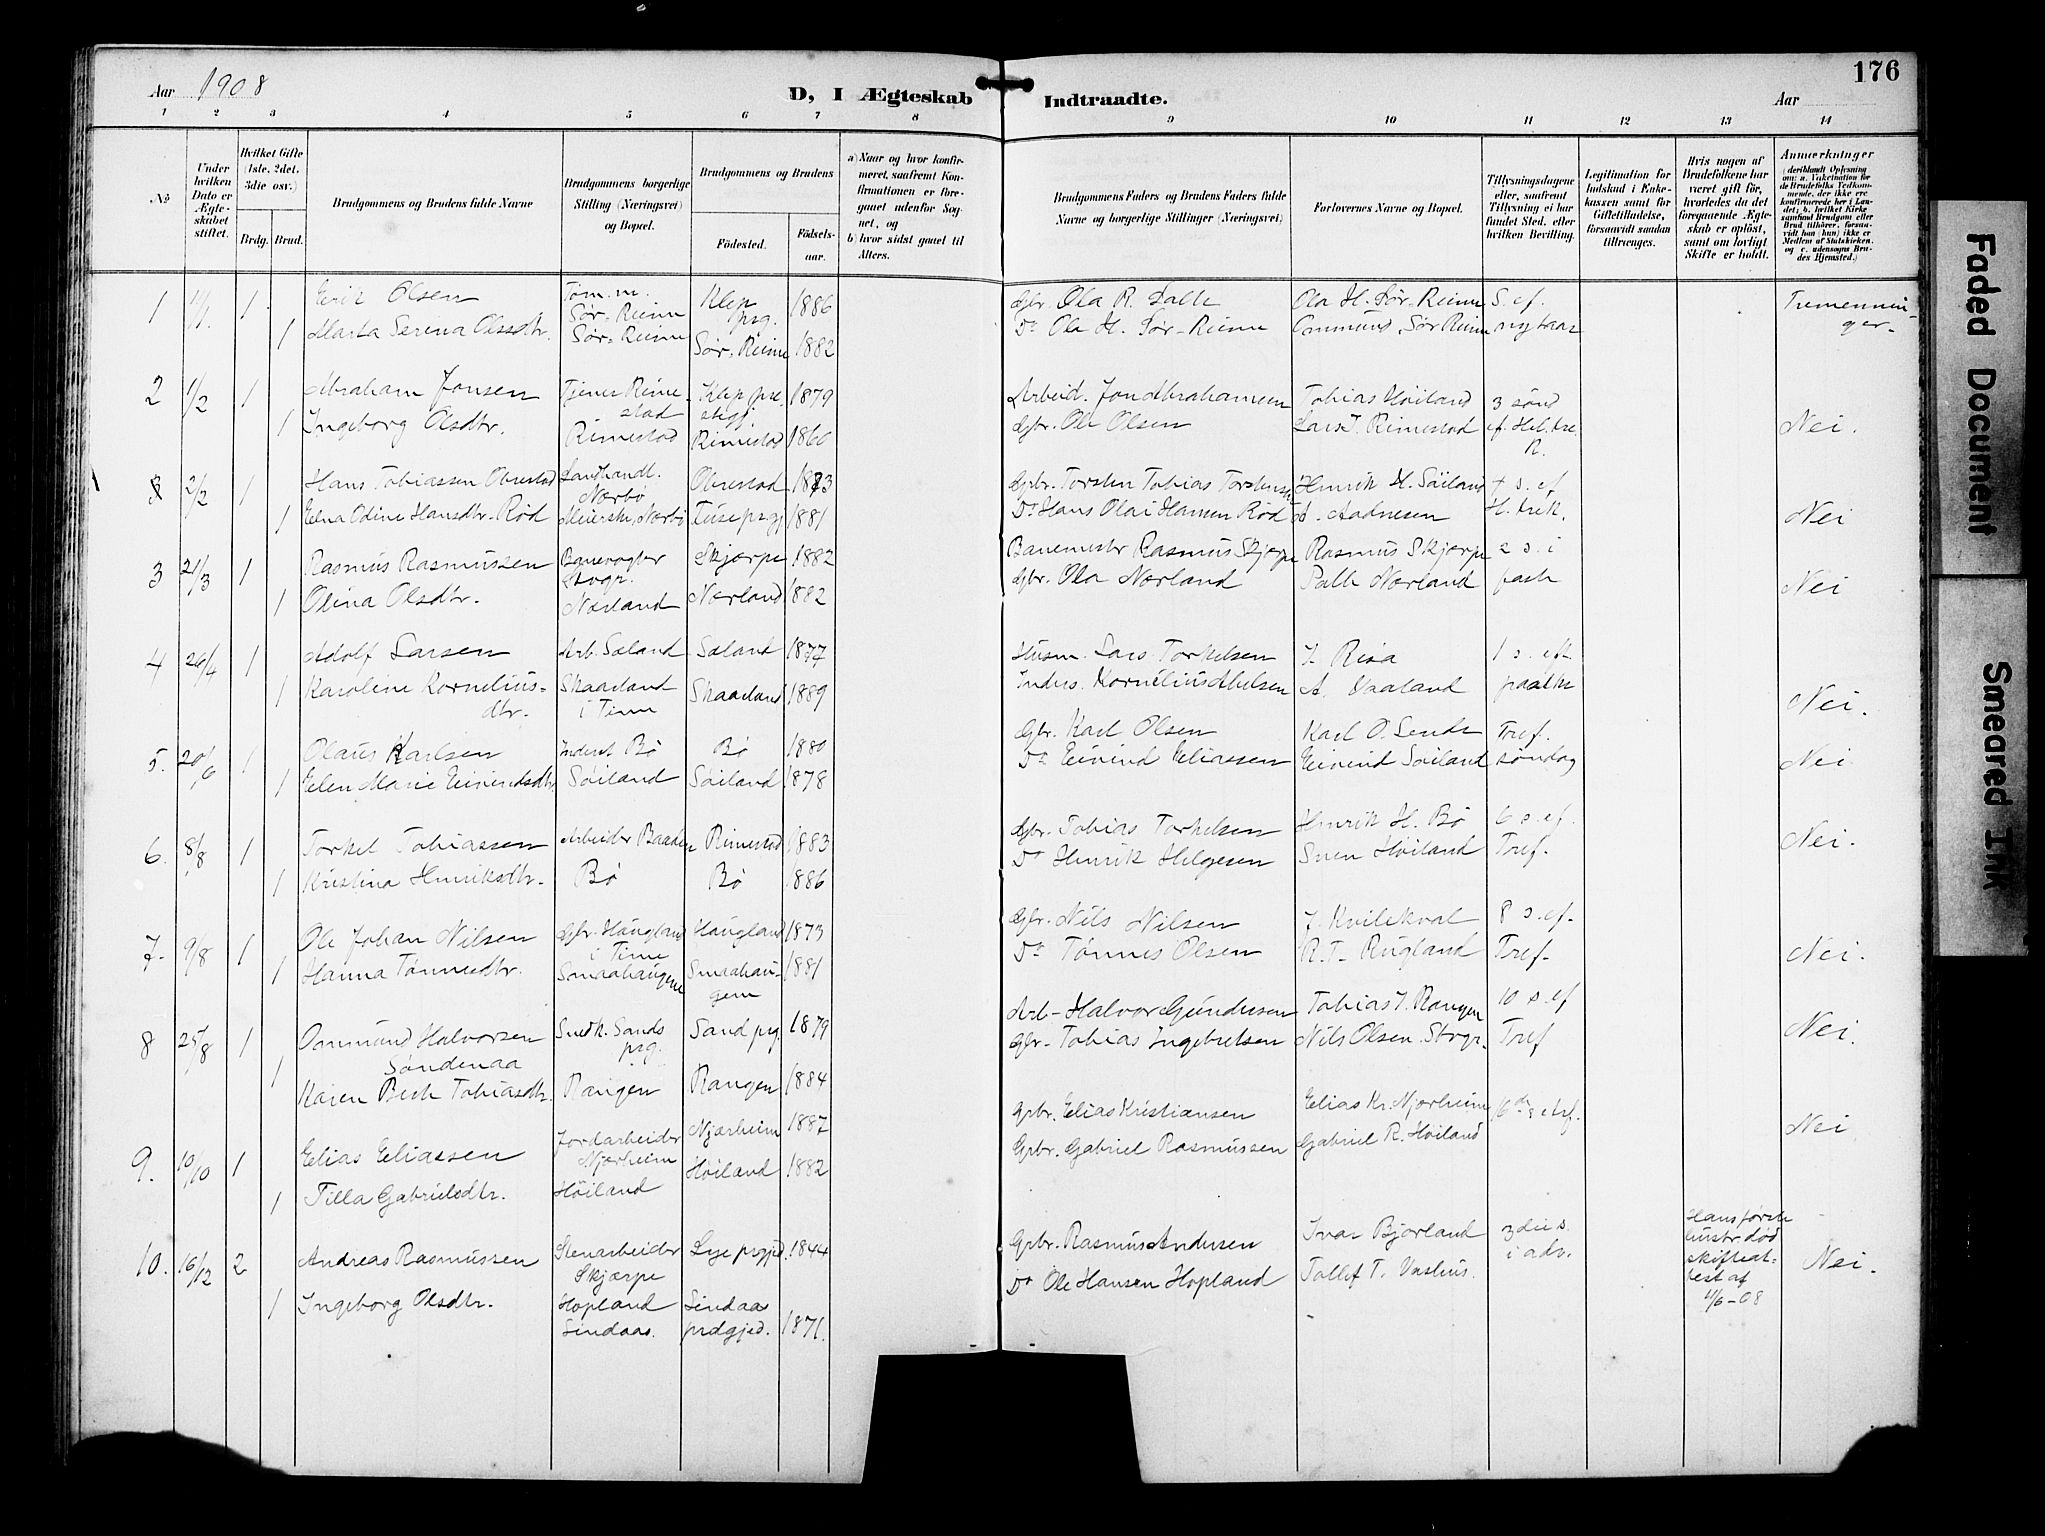 Aar 1908
D, I Ægteskab Indtraadte.
176
Aar
1 2 3 4 5 6 7 8 9 10 11 12 13 14
No
Under hvilken Dato er Ægteskabet stiftet.
Hvilket Gifte (1ste, 2det, 3die osv.)
Brdg. Brud.
Brudgommens og Brudens fulde Navne
Brudgommens borgerlige Stilling (Næringsvei) og Bopæl.
Brudgommens og Brudens
Fødested.
Fødsels-aar.
a) Naar og hvor konfirmeret, saafremt Konfirmationen er foregaaet udenfor Sognet, og
b) hvor sidst gaaet til Alters.
Brudgommens Faders og Brudens Faders fulde Navne og borgerlige Stillinger (Næringsvei)
Forlovernes Navne og Bopæl.
Tillysningsdagene eller, saafremt Tillysning ei har fundet Sted, efter hvilken Bevilling.
Legitimation for Indskud i Enkekassen samt for Giftetilladelse, forsaavidt saadan tiltrænges.
Hvis nogen af Brudefolkene har været gift før, hvorledes da det foregaaende Ægteskab er opløst, samt om lovligt Skifte er holdt.
Anmærkninger
(deriblandt Oplysning om: a. Vakcination for de Brudefolks Vedkommende, der ikke ere konfirmerede her i Landet; b. hvilket Kirkesamfund Brudgom eller Brud tilhører, forsaavidt han (hun) ikke er Medlem af Statskirken, og c. udensogns Brudes Hjemsted.)
1 1 Erik Olsen Tøm.m. Sør-Reime Klep prg. 1886 Gbr. Ola R. Salte Ola H. Sør-Reime S. ef. Tremennin-
1 Marta Serena Olsdtr. Sør-Reime Sør-Reime 1882 Do Ola H. Sør-Reime Ommund Sør Reime nytaar ger-
2 1/2 1 Abraham Jonsen Tjener Rimestad Klep pre.stegj 1879 Arbeid. Jon Abrahamsen Tobias Høiland 3 sønd
1 Ingeborg Olsdtr. Rimestad Rimestad 1860 Gbr. Ole Olsen Lars T. Rimestad ef. Hel. tre. R. Nei.
3 2/2 1 Hans Tobiassen Obrestad Landhandl. Nærbø Obrestad 1883 Gbr. Torsten Tobias Torstensen Henrik H. Søiland + s. ef
1 Elna Odine Hansdtr. Rød Meierske, Nærbø Tuse prgj 1881 Do Hans Olai Hansen Rød A. Aadnesen H. trek. Nei
3 21/3 1 Rasmus Rasmussen Banevogter Stvgr. Skjærpe 1882 Banemestr Rasmus Skjærpe Rasmus Skjærpe 2 s. i
1 Olina Olsdtr. Nærland Nærland 1882 Gbr. Ola Nærland Palle Nærland faste Nei
4 26/4 1 Adolf Larsen Arb. Sæland Sæland 1877 Husm. Lars Torkelsen J. Risa 1 s. eft.
1 Karoline Kornelius-dtr. Skaaeland i Time Skaaeland 1889 Inders. Kornelius Abelsen A. Vaaland paaske Nei.
5. 20/6 1 Olaus Karlsen Inderst Bø Bø 1880 Gbr. Karl Olsen Karl O. Lende Tref.
1 Elen Marie Eivindsdtr. Søiland Søiland 1878 Do Eivind Eliassen Eivind Søiland søndag Nei
6. 8/8 1 Torkel Tobiassen Arbeider Rimestad 1883 Gbr. Tobias Torkelsen Henrik H. Bø 6 s. ef.
1 Kristina Henriksdtr. Bø Bø 1886 Do Henrik Helgesen Sven Høiland Tref. Nei.
7. 9/8 1 Ole Johan Nilsen Gbr. Haugland i Time Haugland 1873 Gbr. Nils Nilsen J. Kvilekval 8 s. ef.
1 Hanna Tønnesdtr. Smaahaugene Smaahau-gene 1881 Do Tønnes Olsen R. T. Rugland Tref. Nei.
8 25/8 1 Ommund Halvorsen Søndenaa Snedk. Sands prg. Sand prg. 1879 Arb. Halvor Gundersen Tobias I. Raugen 10 s. ef
1 Karen Berte Tobiasdtr. Raugen Raugen 1884 Gbr. Tobias Ingebretsen Nils Olsen Stvgr. Tref Nei.
9. 10/10 1 Elias Eliassen Jordarbeider Njærheim Njærheim 1887 Grbr. Elias Kristiansen Elias Kr. Njærheim 16de s. e. tref.
1 Tilla Gabrielsdtr. Høiland Høiland 1882 Grbr. Gabriel Rasmussen Gabriel R. Høiland Nei
10. 16/12 2 Andreas Rasmussen Stenarbeider Skjærpe Lye prgjed. 1844 Grbr. Rasmus Andersen Ivar Bjorland 3die s. i adv. Hans første hustr. død skifteat-test af 4/6-08 Nei.
1 Ingeborg Olsdtr. Hopland Lindaas Lindaas prdgjed. 1871. Do Ole Hansen Hopland Tollef T. Vashus.
Faded Document
Smeared Ink